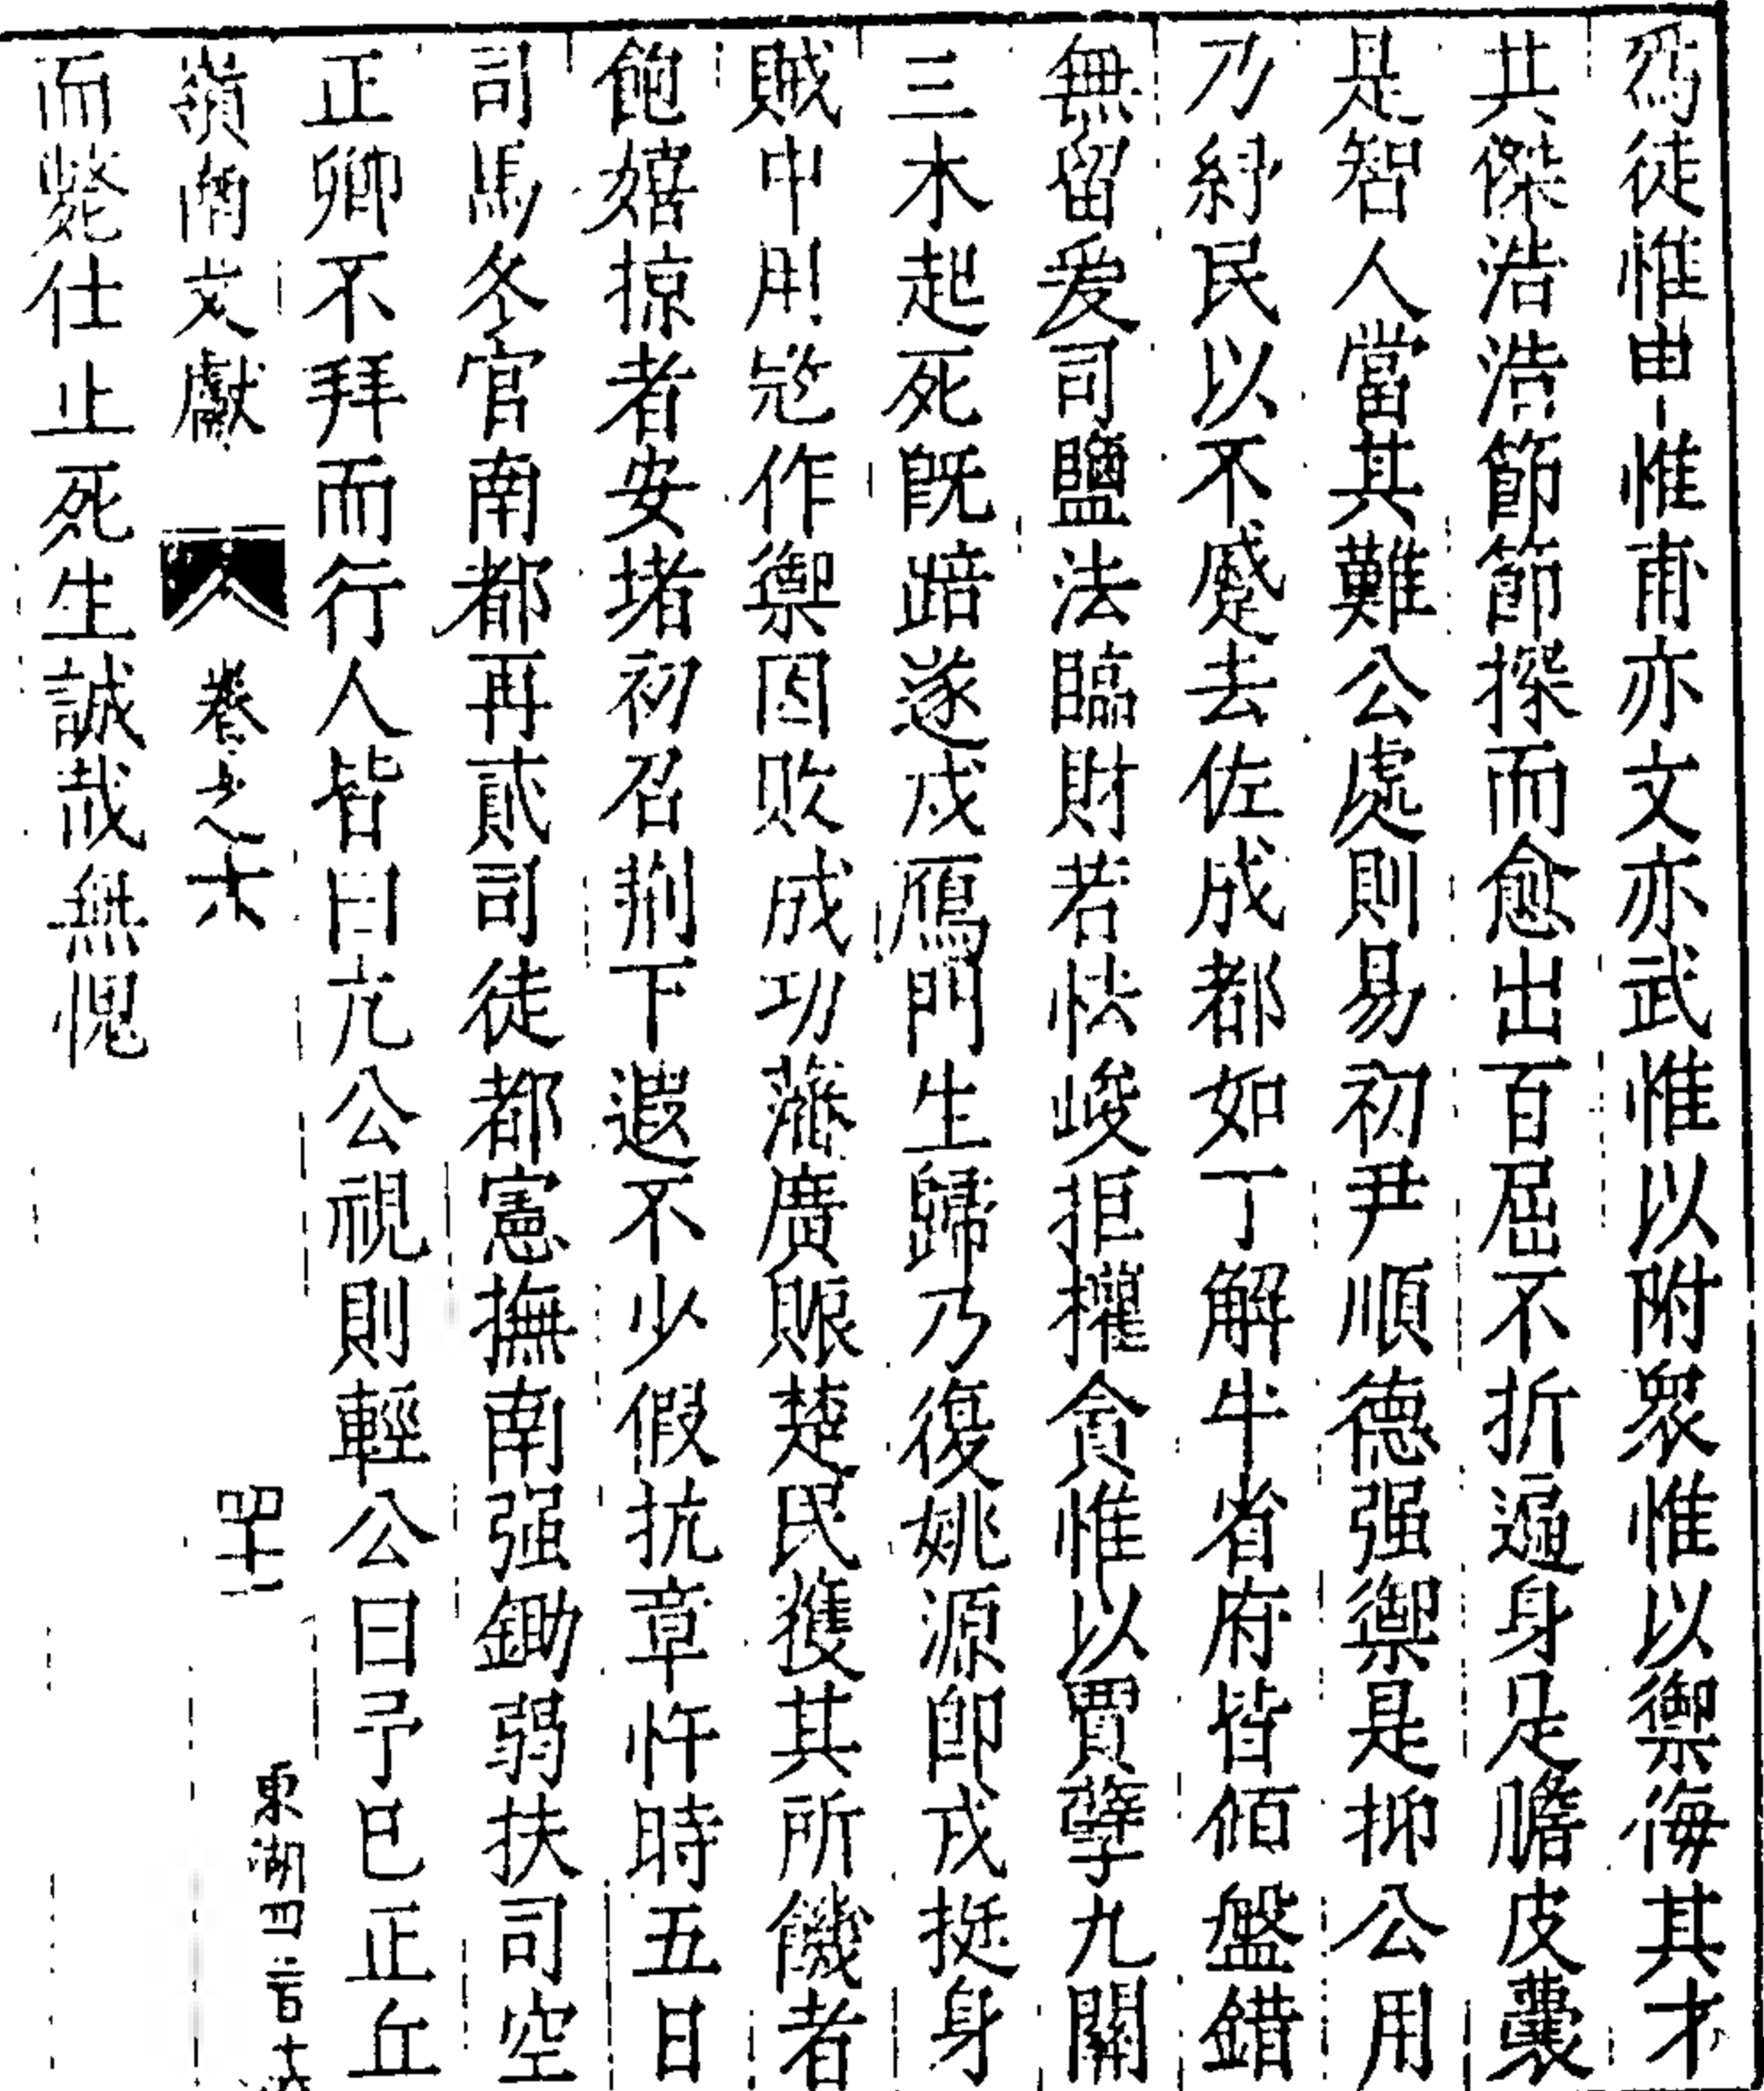 爲徒惟申惟甫亦文亦武惟以附衆惟以禦侮其才
共傑浩浩節節操而愈出百屈不折遍身是膽皮囊
是智人當其難公處則易初尹順德强禦是抑公用
乃紓民以不蹙去佐成都如丁解牛省府皆佰盤錯
無留爰司鹽法臨財若怯峻拒權貪惟以賈孽九關
三木起死旣踣遂戍鴈門生歸乃復姚源卽戎挺身
賊中用愆作禦因敗成功藩廣賑楚民獲其所饑者
飽嬉掠者安堵初召荆下遐不少假抗章忤時五日
司馬冬官南都再貳司徒都憲撫南强鋤弱扶司空
正卿不拜而行人皆曰亢公視則輕公曰予巳正丘
嶺南文獻 卷之六 四十一 東湖四百十
而斃仕止死生誠哉無愧